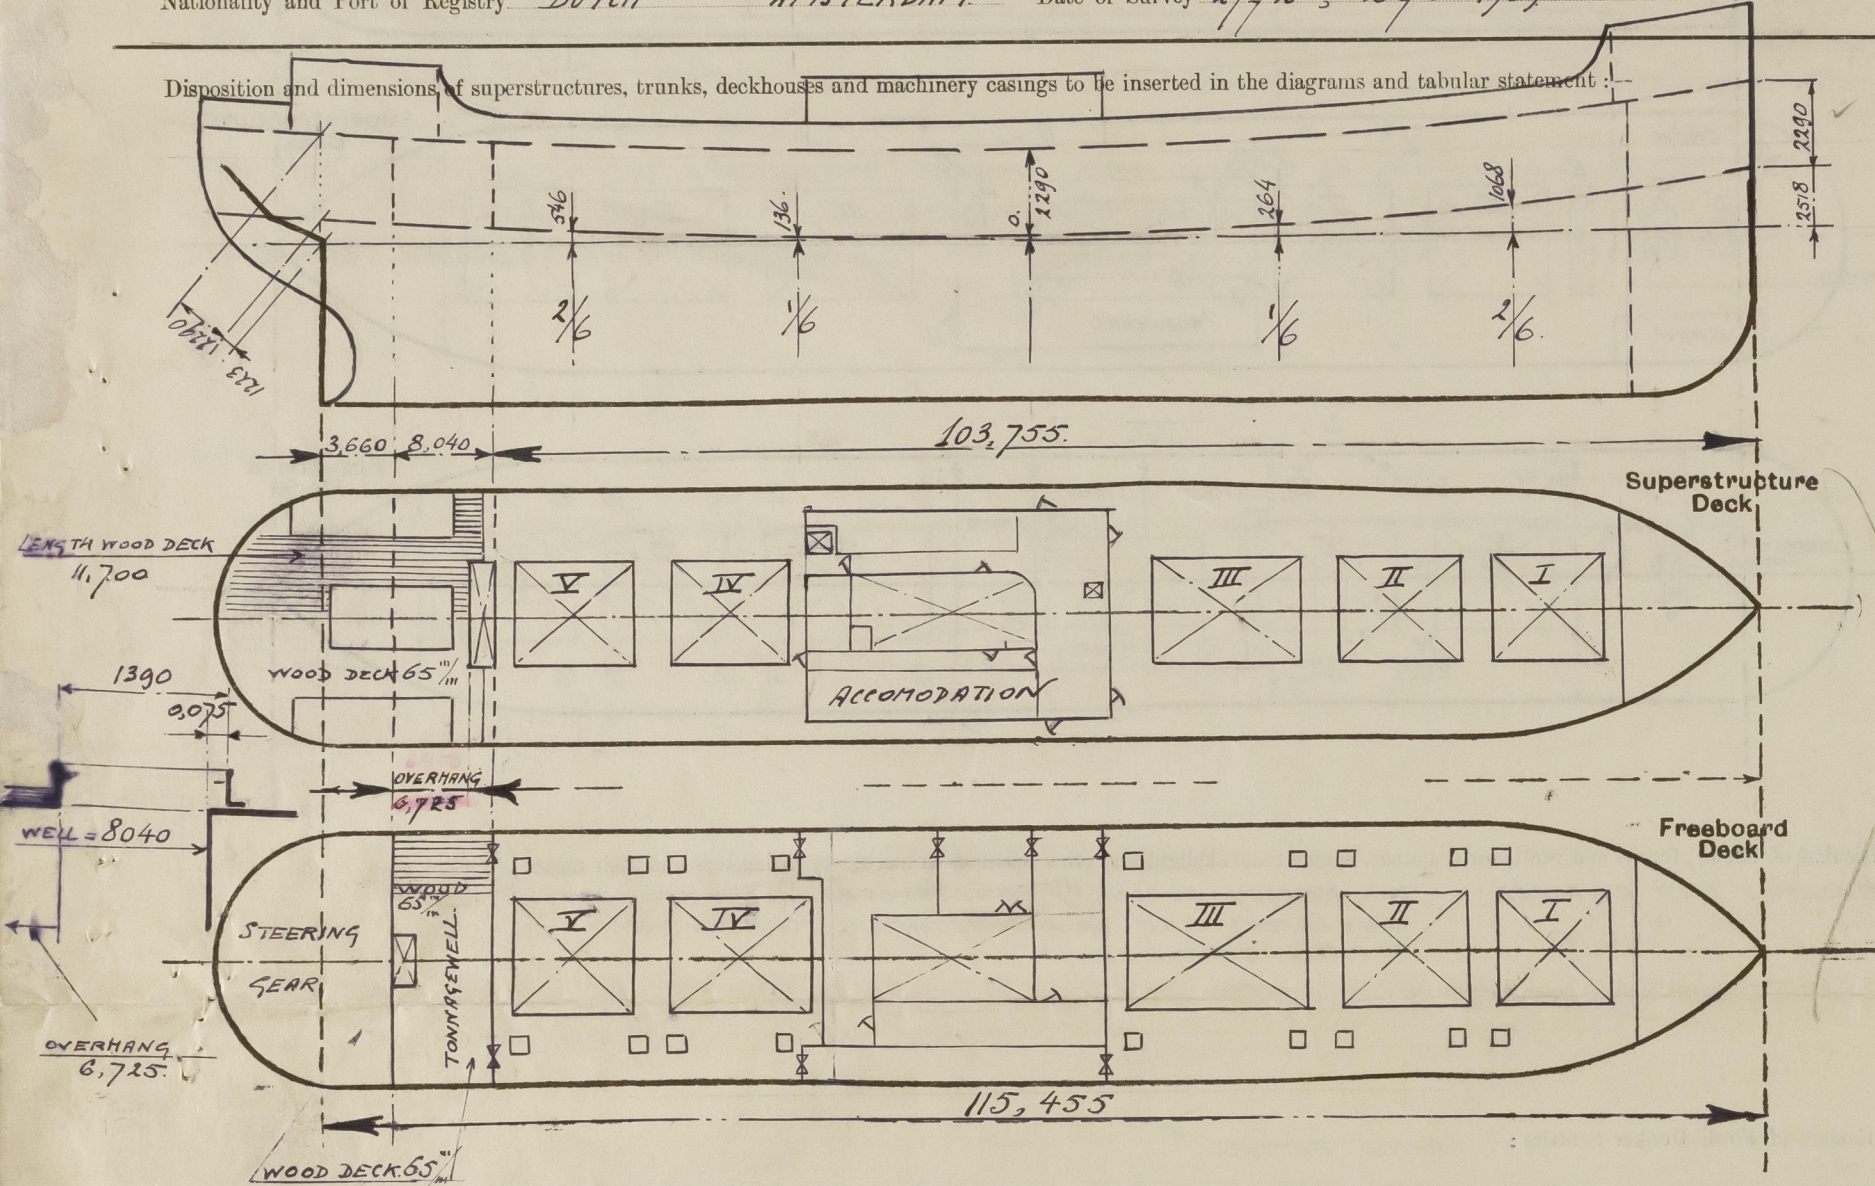 Nationality and Port of Registry DUTCH AMSTERDAM. Date of Survey
Disposition and dimensions of superstructures, trunks, deckhouses and machinery casings to be inserted in the diagrams and tabular statement :—
546
136.
0.
2290
264
1068
2290
2518
2/6
1/6
1/6
2/6.
2290
1223
3,660
8,040
103,755.
Superstructure
Deck
LENGTH WOOD DECK
11,700
V
IV
III
II
I
WOOD DECK 65 m/m
ACCOMODATION
1390
0,075
OVERHANG
6,725
WELL = 8040
Freeboard
Deck
WOOD
65 m/m
V
IV
III
II
I
STEERING
GEAR
TONNAGEWELL.
OVERHANG
6,725.
115,455
WOOD DECK 65 m/m